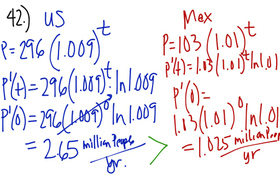 42.) US
P=296(1.009)^t
P'(t)=296(1.009)^t·ln1.009
P'(0)=296(1.009)^0·ln1.009
=2.65 million peops/yr.
>
Mex
P=103(1.01)^t
P'(t)=1.03(1.01)^t ln1.01
P'(0)=
1.03(1.01)^0 ln1.01
=1.025 million peops/yr